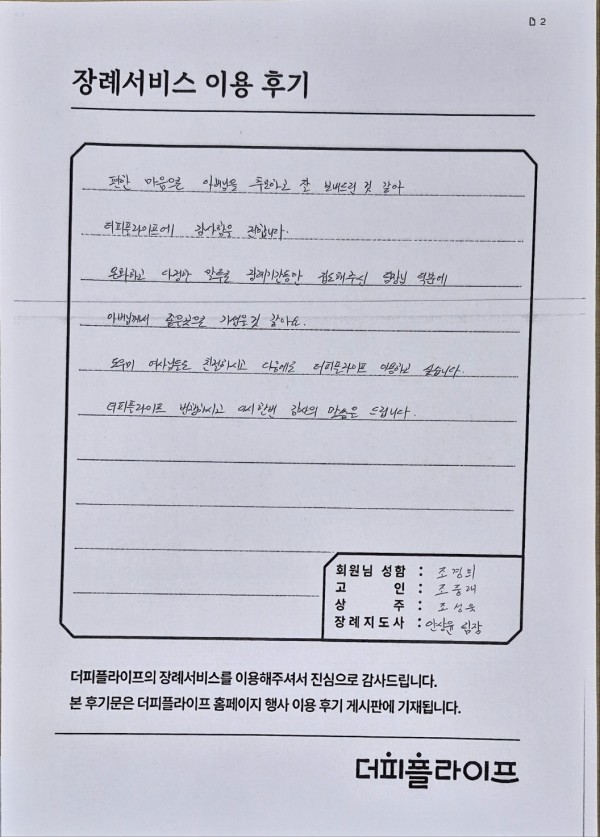 2
장례서비스 이용 후기
편한 마음으로 아버님을 추모하고 잘 보내드린 것 같아
더피플라이프에 감사함을 전합니다.
온화하고 다정한 말투로 장례기간동안 검도해주신 팀장님 덕분에
아버님께서 좋은곳으로 가셨을것 같아요.
도우미 여사님들도 친절하시고 다음에도 더피플라이프 이용하고 싶습니다.
더피플라이프 번창하시고 다시한번 감사의 말씀을 드립니다.
회원님 성함 : 조경희
고 인 : 조풍래
상 주 : 조성욱
장례지도사 : 안상윤 팀장
더피플라이프의 장례서비스를 이용해주셔서 진심으로 감사드립니다.
본 후기문은 더피플라이프 홈페이지 행사 이용 후기 게시판에 기재됩니다.
더피플라이프